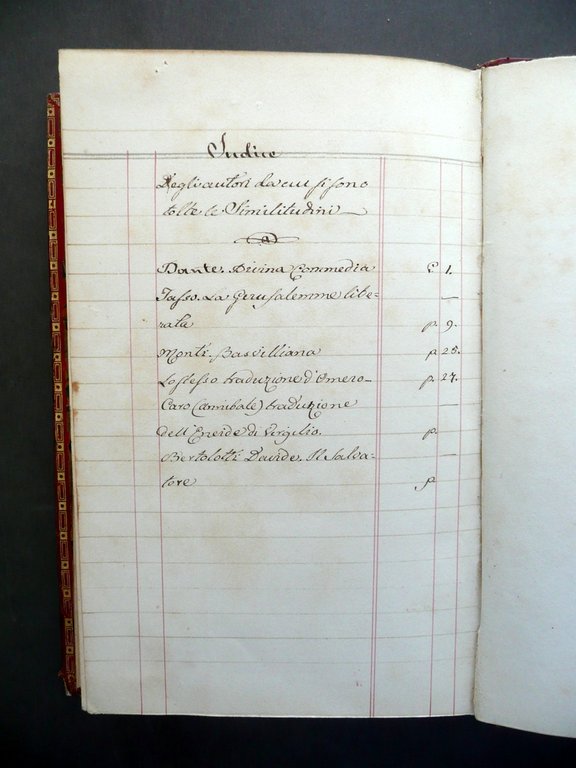 Indice
Degli autori da cui si sono
tolte le Similitudini —
Dante. Divina Commedia p. 1.
Tasso. La Gerusalemme libe- —
rata p. 9.
Monti. Basvilliana p. 25.
Lo stesso traduzione d'Omero- p. 27.
Caro (Annibale) traduzione —
dell'Eneide di Virgilio. p.
Bertolotti Davide. Il Salva- —
tore p